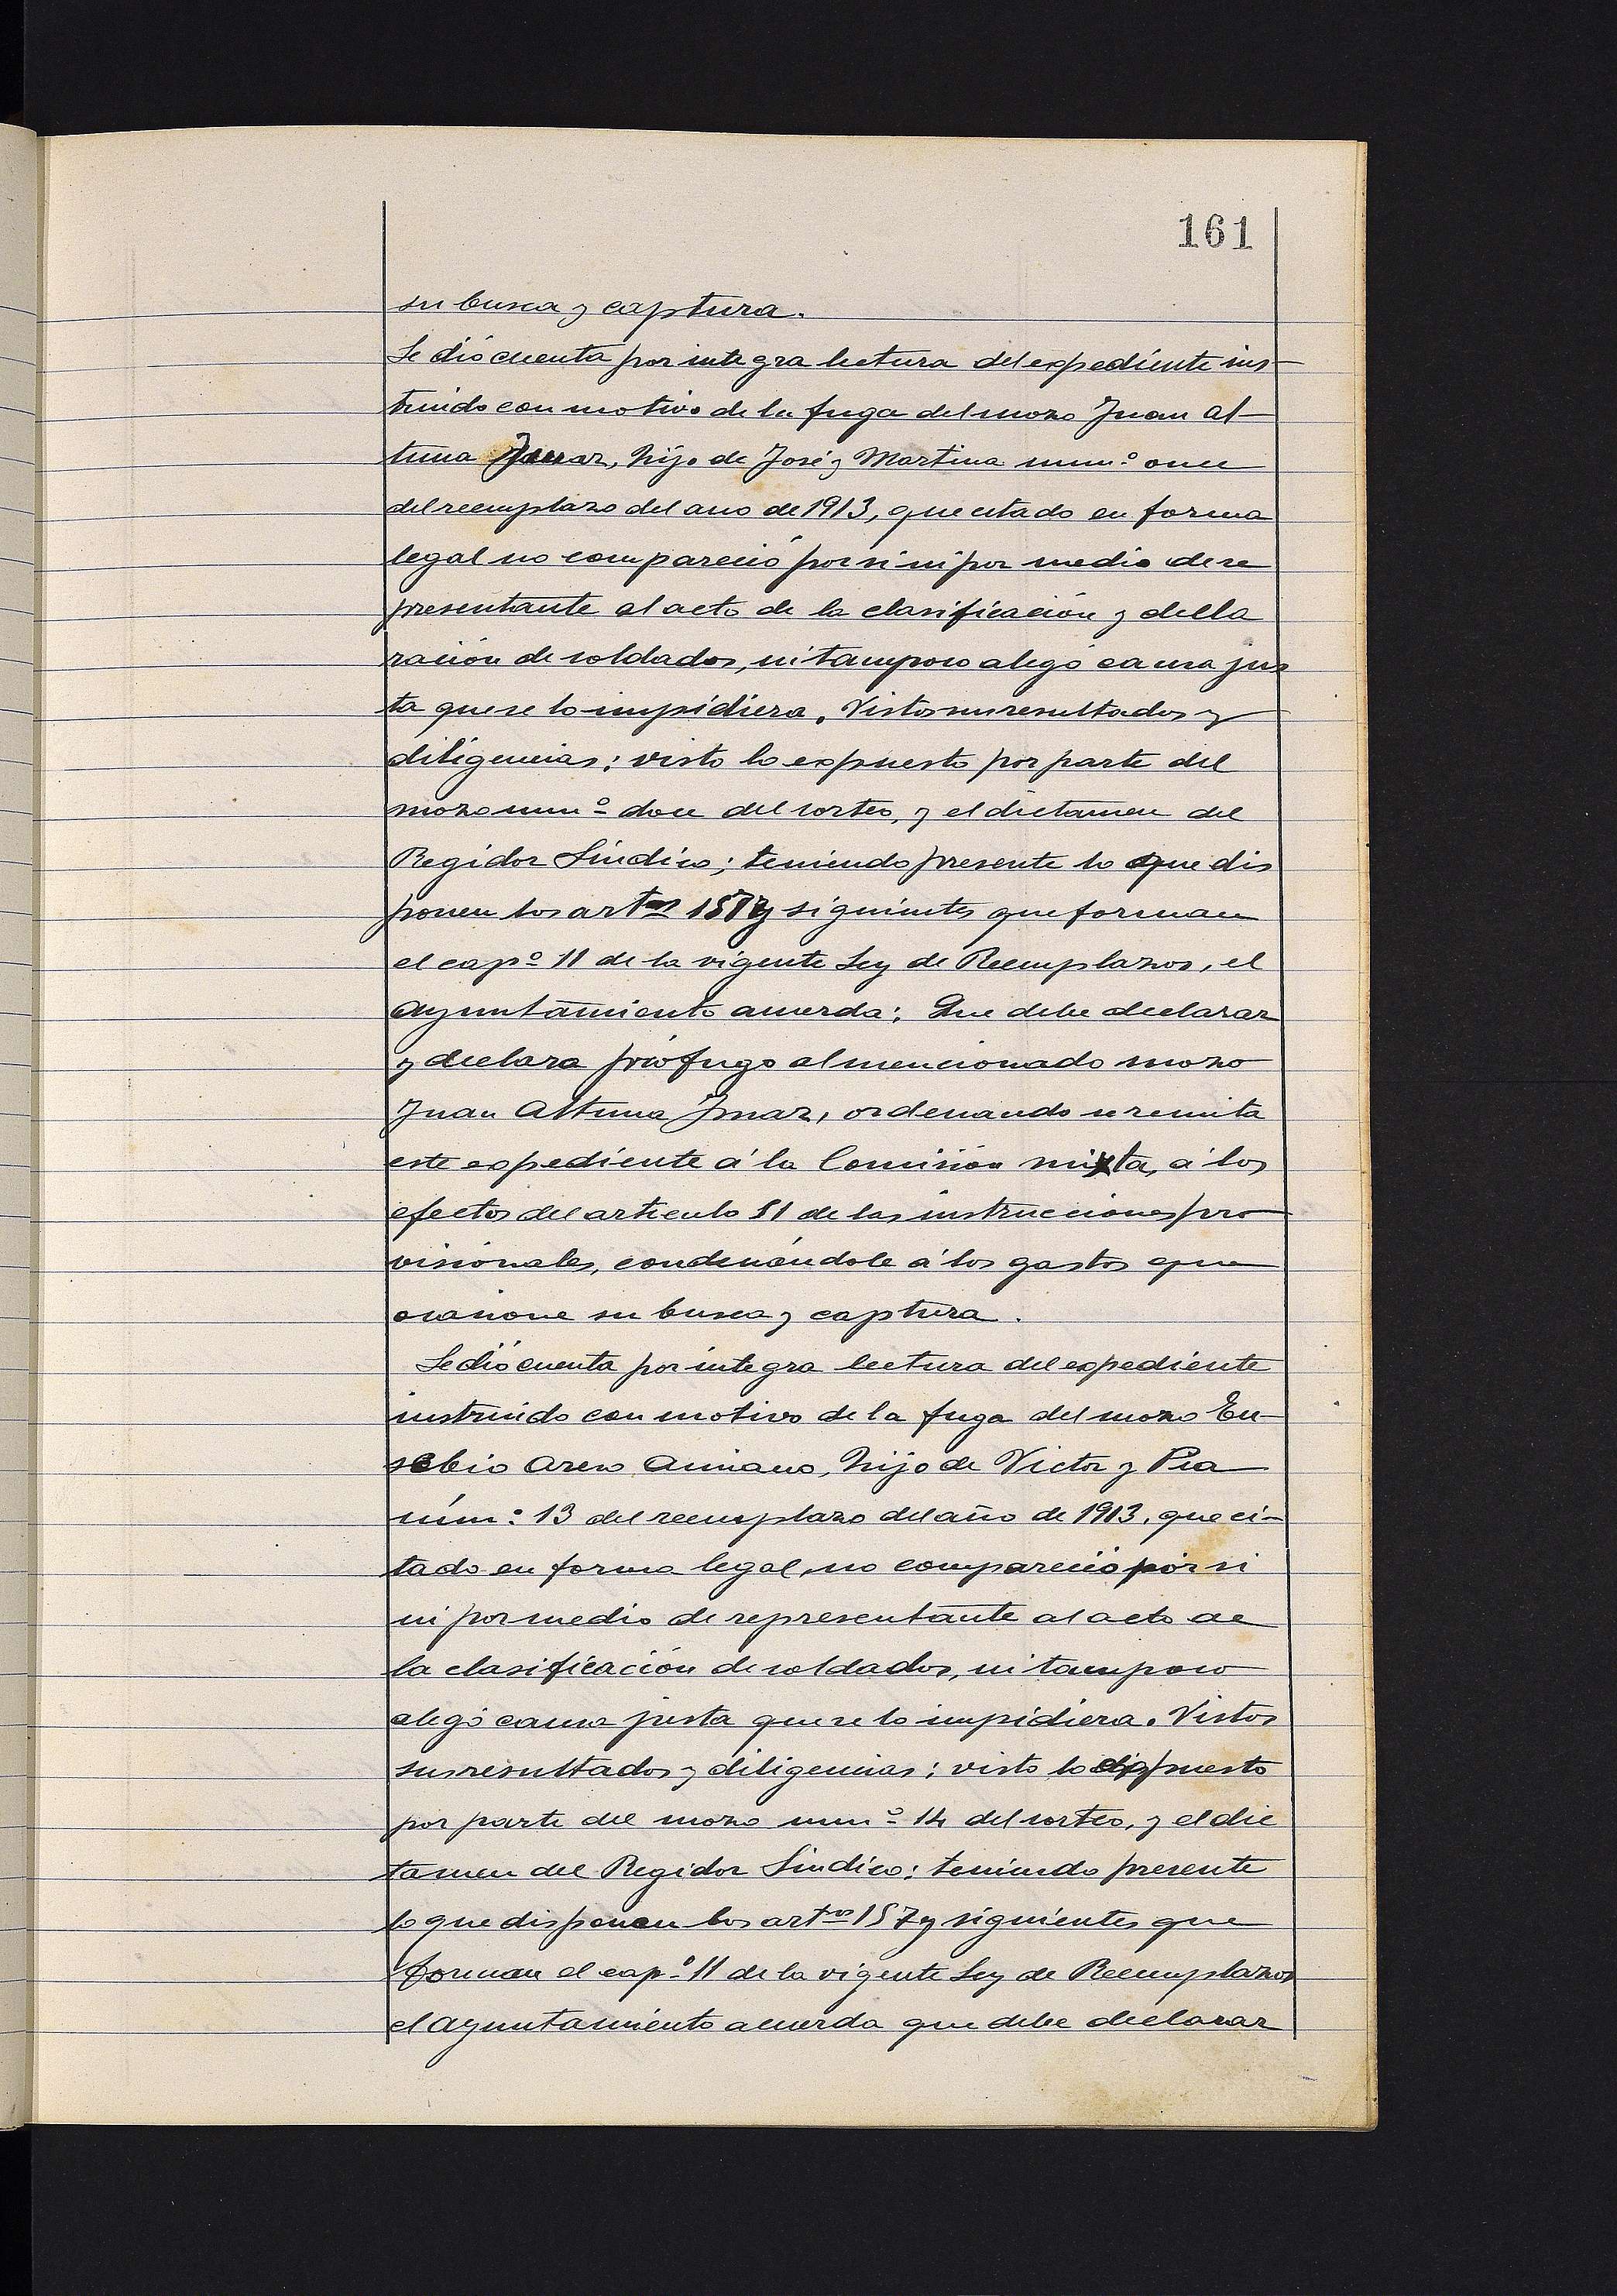 161
su busca y captura.
Se dió cuenta por integra lectura del expediente ins-
truido con motivo de la fuga del mozo Juan Al-
tuna Imaz, hijo de José y Martina num.º once
del reemplazo del ano de 1913, que citado en forma
legal no compareció por si ni por medio de re
presentante al acto de la clasificación y decla
ración de soldados, ni tampoco alegó causa jus
ta que se lo impidiera. Vistos sus resultados y
diligencias; visto lo expuesto por parte del
mozo num.º doce del sorteo, y el dictamen del
Regidor Síndico; teniendo presente lo que dis
ponen los artos 157 y siguientes que forman
el capº 11 de la vigente Ley de Reemplazos, el
Ayuntamiento acuerda: Que debe declarar
y declara prófugo al mencionado mozo
Juan Altuna Imaz, ordenando se remita
este expediente á la Comisión mixta, á los
efectos del articulo 51 de las instrucciones pro
visionales, condenándole á los gastos que
ocasione su busca y captura.
Se dió cuenta por integra lectura del expediente
instruido con motivo de la fuga del mozo Eu-
sebio Arero Amiano, hijo de Victor y Pia
núm.º 13 del reemplazo del año de 1913, que ci-
tado en forma legal, no compareció por si
ni por medio de representante al acto de
la clasificación de soldados, ni tampoco
alegó causa justa que se lo impidiera. Vistos
sus resultados y diligencias; visto lo expuesto
por parte del mozo num.º 14 del sorteo, y el dic
tamen del Regidor Síndico; teniendo presente
lo que disponen los artos 157 y siguientes que
forman el cap.º 11 de la vigente Ley de Reemplazos
el Ayuntamiento acuerda que debe declarar